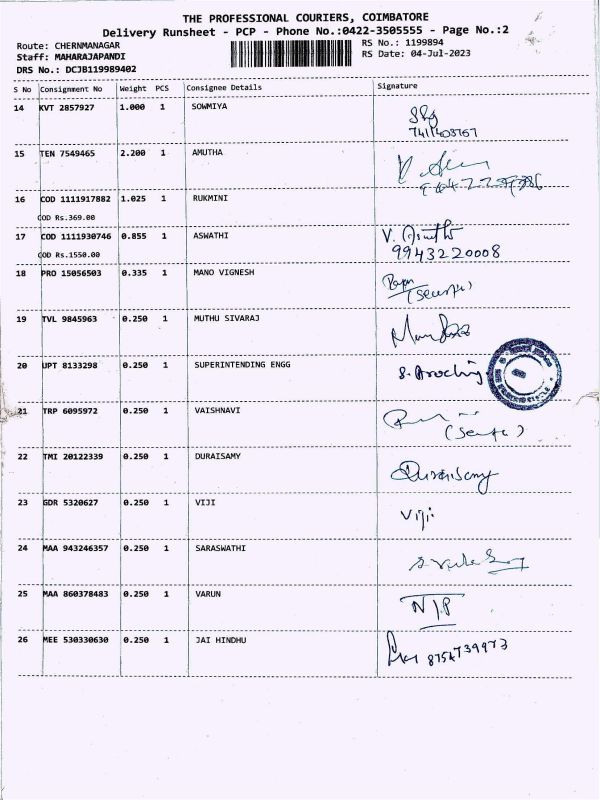 THE PROFESSIONAL COURIERS, COIMBATORE
Delivery Runsheet - PCP - Phone No.:0422-3505555 - Page No.:2
Route: CHERNMANAGAR RS No.: 1199894
Staff: MAHARAJAPANDI RS Date: 04-Jul-2023
DRS No.: DCJB119989402
S No Consignment No Weight PCS Consignee Details Signature
14 KVT 2857927 1.000 1 SOWMIYA
15 TEN 7549465 2.200 1 AMUTHA
16 COD 1111917882 1.025 1 RUKMINI
COD Rs.369.00
17 COD 1111930746 0.855 1 ASWATHI
9943220008
COD Rs.1550.00
18 PRO 15056503 0.335 1 MANO VIGNESH
19 TVL 9845963 0.250 1 MUTHU SIVARAJ
20 UPT 8133298 0.250 1 SUPERINTENDING ENGG
21 TRP 6095972 0.250 1 VAISHNAVI
22 TMI 20122339 0.250 1 DURAISAMY
Duraisamy
23 GDR 5320627 0.250 1 VIJI
Viji
24 MAA 943246357 0.250 1 SARASWATHI
25 MAA 860378483 0.250 1 VARUN
N/P
26 MEE 530330630 0.250 1 JAI HINDHU
8754739973